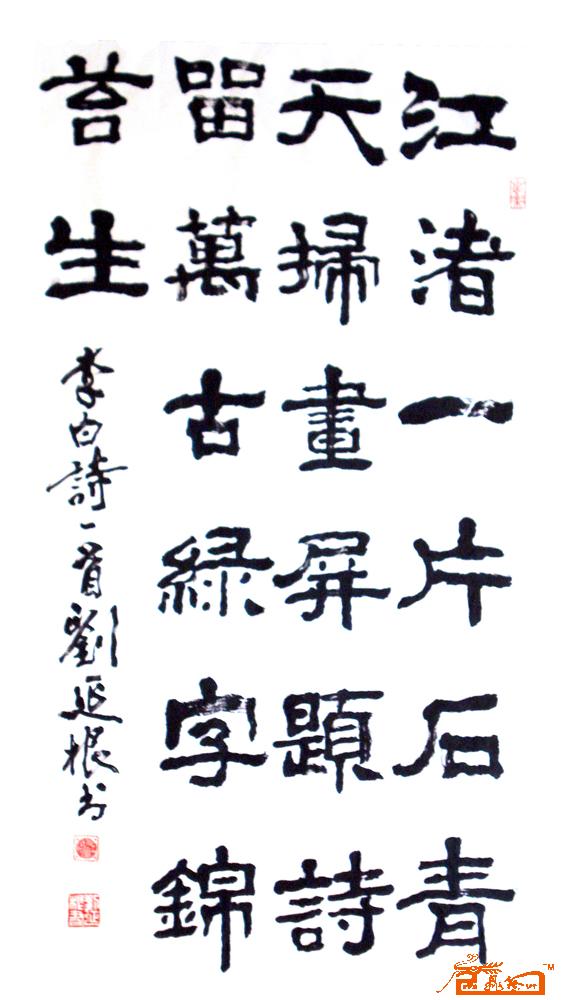 江渚一片石青
天掃畫屏題詩
畱萬古綠字錦
苔生
李白詩一首劉延根书